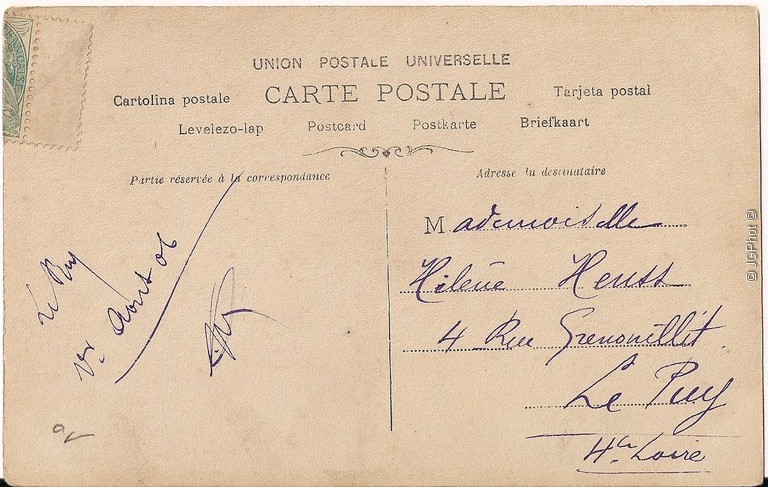 UNION POSTALE UNIVERSELLE
Cartolina postale CARTE POSTALE Tarjeta postal
Levelezo-lap Postcard Postkarte Briefkaart
Partie réservée à la correspondance
Adresse du destinataire
Mademoiselle
Hélène Heuss
4 Rue Grenouillit
Le Puy
Hte Loire
Le Puy
Août 06
© JGPhot ©